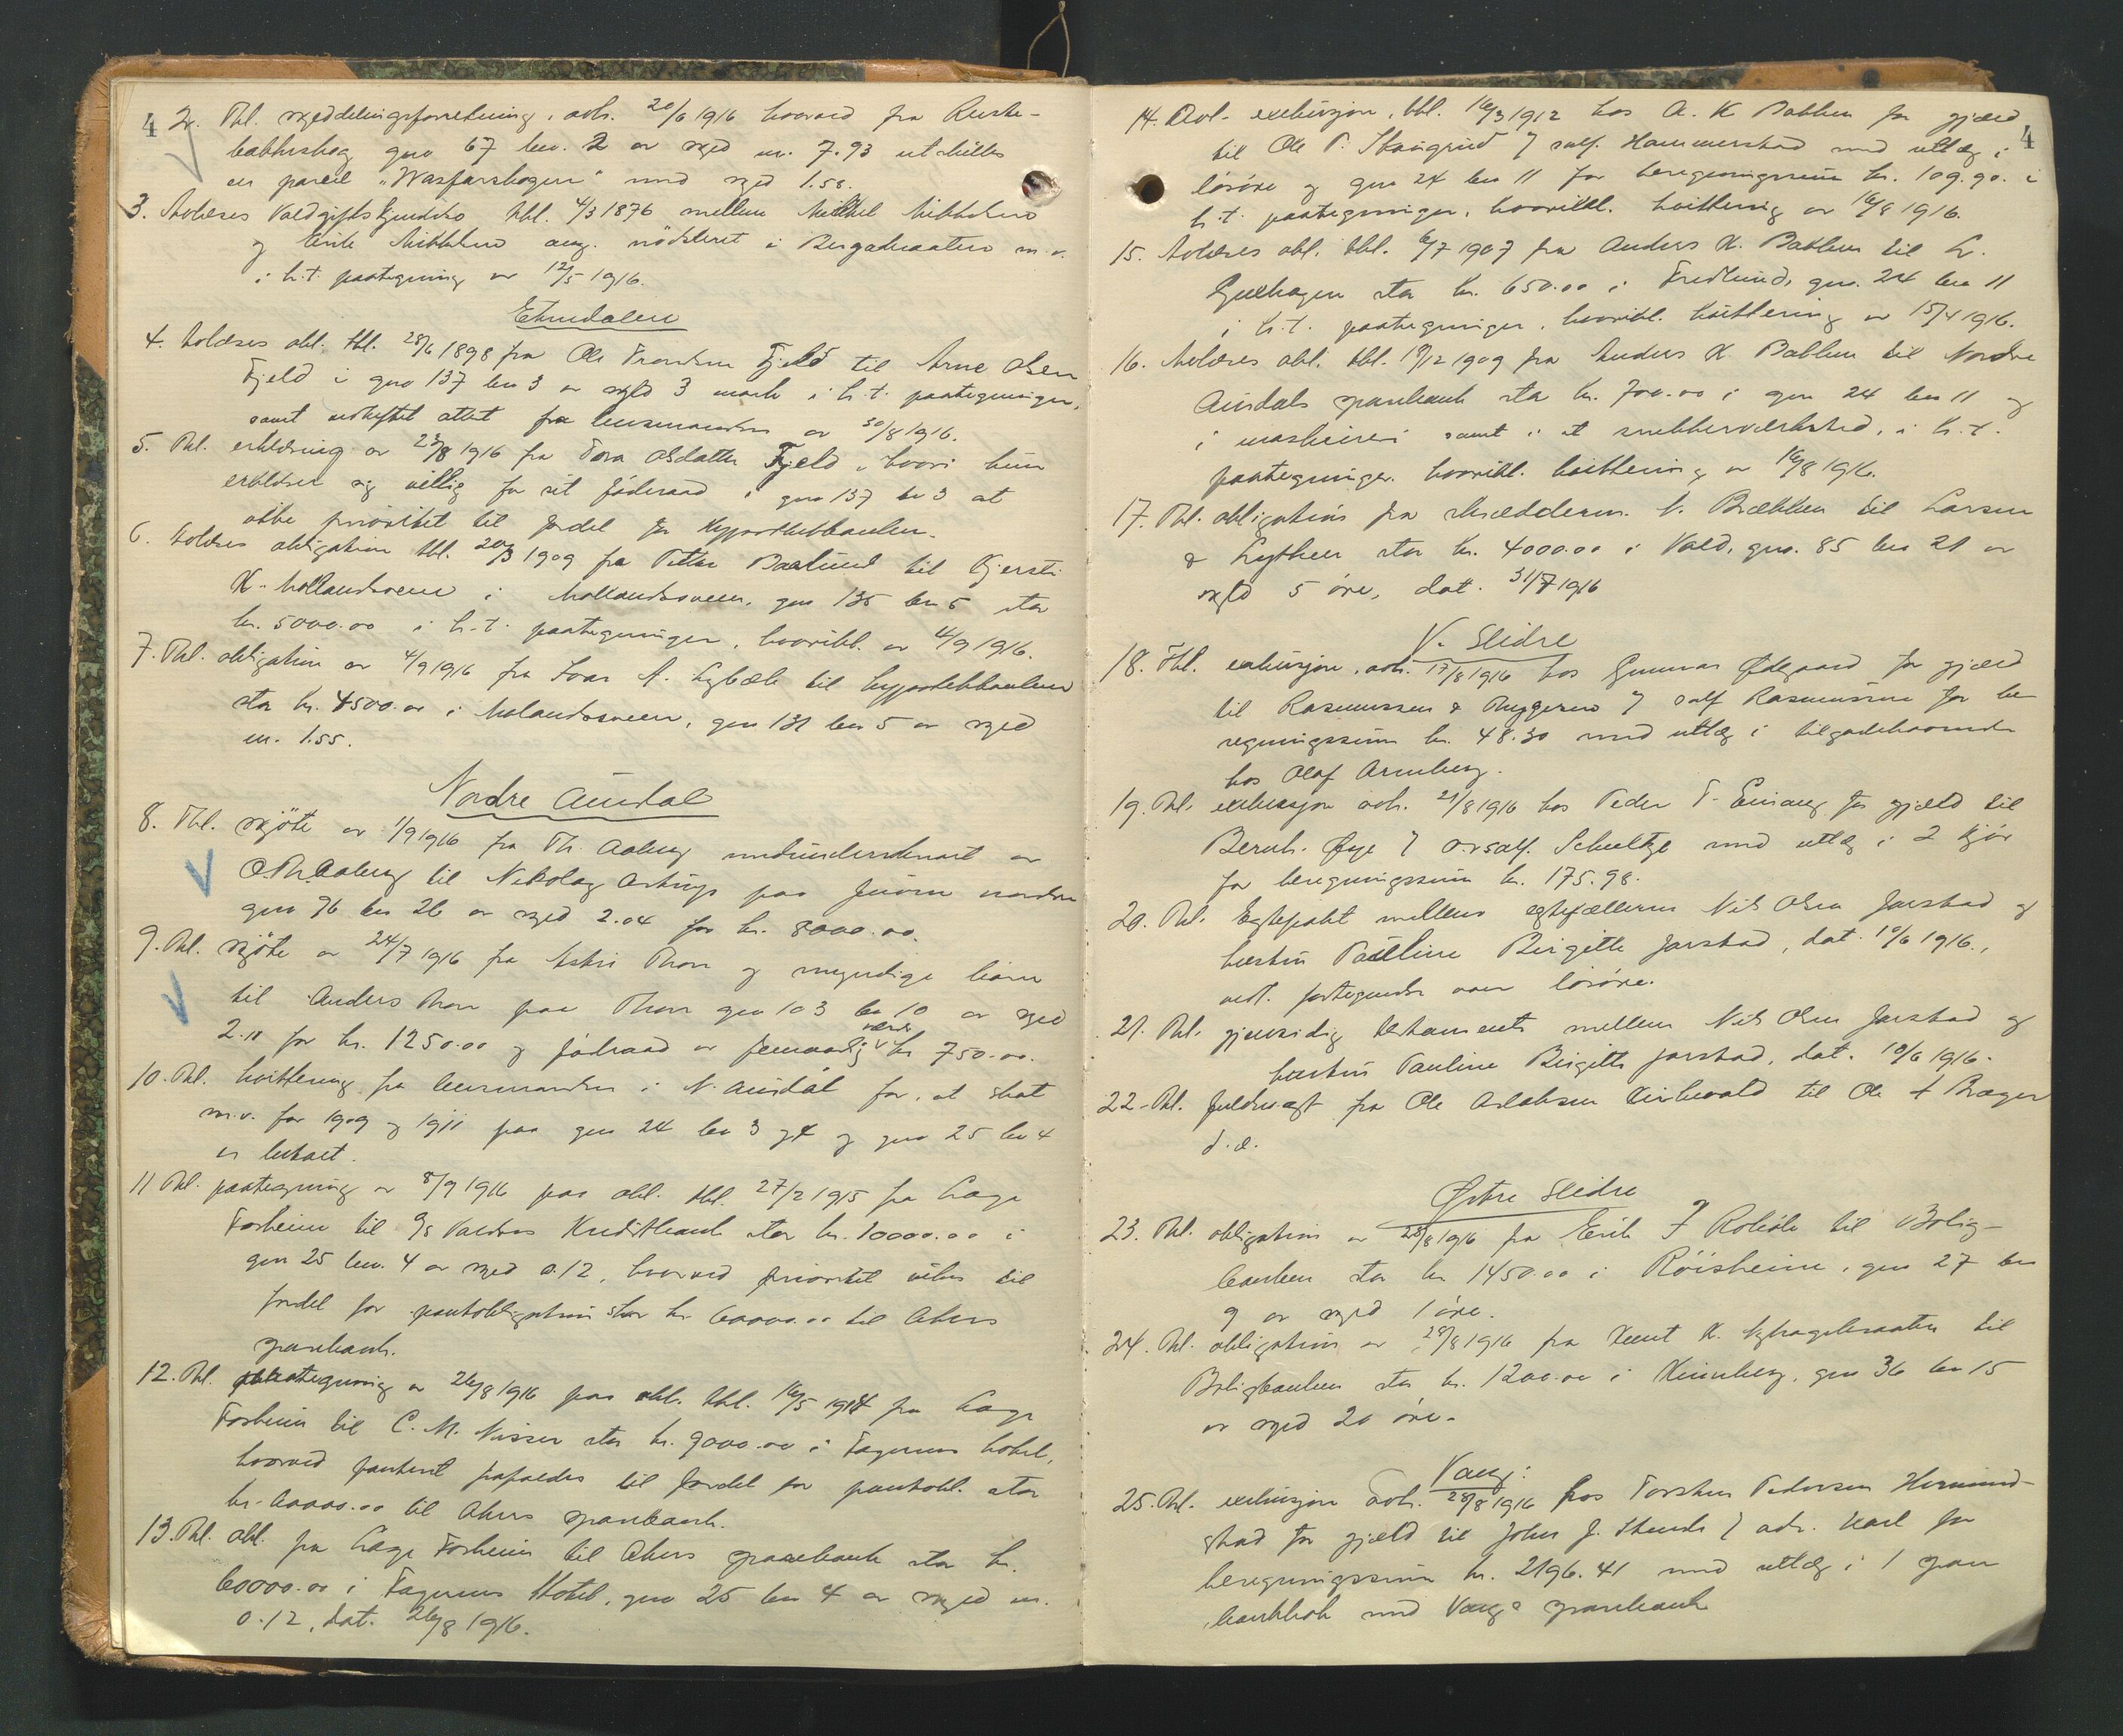 4 2. Thl. skylddelingsforretning, avh. 20/6 1916 hvorved fra Ruste-
bakkeskog gno 67 bno. 2 av skyld m. 7.93 utskilles
en parcel "Wasfarskogen" med skyld 1.58.
3. Avlæses Voldgiftskjendelse thl. 4/3 1876 mellem Mikkel Mikkelsen
og Erik Mikkelsen ang. nödsleret i Bergabraaten m.v.
i h.t. paategning av 12/5 1916.
Etnedalen
4. Avlæses obl. thl. 28/6 1898 fra Ole Trondsen Fjeld til Arne Olsen
Fjeld i gno 137 bno 3 av skyld 3 mark i h.t. paategninger,
samt vedheftet attest fra lensmanden av 30/8 1916.
5. Thl. erklæring av 23/8 1916 fra Tora Olsdatter Fjeld, hvori hun
erklærer sig villig for sit föderaad i gno 137 bno 3 at
vike prioritet til fordel for Hypothekbanken.
6. Avlæses obligation thl. 20/3 1909 fra Petter Baslund til Kjersti
K. Mollandsveen i Mollandsveen, gno 135 bno 5 stor
kr. 5000.00 i h.t. paategninger, hvoriblt. av 4/9 1916.
7. Thl. obligation av 4/9 1916 fra Ivar A. Lybæk til hypothekbanken
stor kr. 4500.00 i Molandsveen, gno 131 bno 5 av skyld
m. 1.55.
Nordre Aurdal
8. Thl. skjöte av 1/9 1916 fra Th. Aaberg medunderskrevet av
O. Th. Aaberg til Nikolay Astrup paa Juvern nordre
gno 76 bno 26 av skyld 2.04 for kr. 8000.00.
9. Thl. skjöte av 24/7 1916 fra Astri Thon og myndige barn
til Anders Thon paa Thon gno 103 bno 10 av skyld
2.11 for kr. 1250.00 og föderaad av femaarlig værdi kr 750.00.
10. Thl. kvittering fra lensmanden i N. Aurdal for, at skat
m.v. for 1909 og 1911 paa gno 24 bno 3 og 4 og gno 25 bno 4
er betalt.
11 Thl. paategning av 8/9 1916 paa obl. thl. 27/2 1915 fra Lage
Forheim til A/S Valdres Kreditbank stor kr. 10000.00 i
gno 25 bno. 4 av skyld 0.12, hvorved prioritet vikes til
fordel for pantobligation stor kr. 60000.00 til Akers
sparebank.
12. Thl. paategning av 26/8 1916 paa obl. thl. 16/5 1914 fra Lage
Forheim til C. M. Nisser stor kr. 9000.00 i Fagernes hotel,
hvorved panteret frafaldes til fordel for pantobl. stor
kr. 60000.00 til Akers sparebank.
13. Thl. obl. fra Lage Forheim til Akers sparebank stor kr.
60000.00 i Fagernes Hotel, gno 25 bno 4 av skyld m.
0.12, dat. 26/8 1916.
4
14. Avl. exekusjon, thl. 16/3 1912 hos A. K Bakken for gjæld
til Ole P. Skavgrind v/ sakf. Hammerstad med utlæg i
lösöre og gno 24 bno 11 for beregningssum kr. 109.90. i
h.t. paategninger, hvoriblt. kvittering av 16/8 1916.
15. Avlæses obl. thl. 6/7 1907 fra Anders K. Bakken til L.
Gjuvhagen stor kr. 650.00 i Fredlund, gno. 24 bno 11
i h.t. paategninger, hvoriblt. kvittering av 15/4 1916.
16. Avlæses obl. thl. 19/12 1909 fra Anders K. Bakken til Nordre
Aurdals sparebank stor kr. 700.00 i gno 24 bno 11 og
i maskineri samt i et snekkerværksted, i h.t.
paategninger. hvoriblt. kvittering av 16/8 1916.
17. Thl. obligation fra skrædderm. N. Brækken til Larsen
& Lytheen stor kr. 4000.00 i Vold, gno. 85 bno 21 av
skyld 5 öre, dat. 31/7 1916
V. Slidre
18. Thl. exekusjon, avh. 17/8 1916 hos Gunnar Ødegaard for gjæld
til Rasmussen & Myggerud v/ sakf Rasmussen for be-
regningssum kr. 48.30 med utlæg i tilgodehavende
hos Olaf Arneberg.
19. Thl. exekusjon avh. 21/8 1916 hos Peder T. Einang for gjæld til
Bernh. Øye v/ o.r.sakf. Schultze med utlæg i 2 kjör
for beregningssum kr. 175.98.
20. Thl. Egtepakt mellem egtefællerne Nils Olsen Jarstad og
hustru Pauline Birgitte Jarstad, dat. 10/6 1916.,
vedl. fortegnelse over lösöre.
21. Thl. gjensidig testamente mellem Nils Olsen Jarstad og
hustru Pauline Birgitte Jarstad, dat. 10/6 1916.
22. Thl. fuldmagt fra Ole Aslaksen Kirkevold til Ole A Brager
d.æ.
Østre Slidre
23. Thl. obligation av 28/8 1916 fra Erik J Roböle til Bolig-
banken stor kr 1450.00 i Röisheim, gno 27 bno
9 av skyld 1 öre.
24. Thl. obligation av 28/8 1916 fra Knut K. Nyhagebraaten til
Boligbanken stor kr. 1200.00 i Kinnberg, gno 36 bno 15
av skyld 20 öre.
Vang:
25. Thl. exekusjon avh. 28/8 1916 hos Torsten Pedersen Hermund-
stad for gjæld til John J. Stende v/ adv. Karl for
beregningssum kr. 2196.41 med utlæg i 1 spare
bankbok med Vangs sparebank